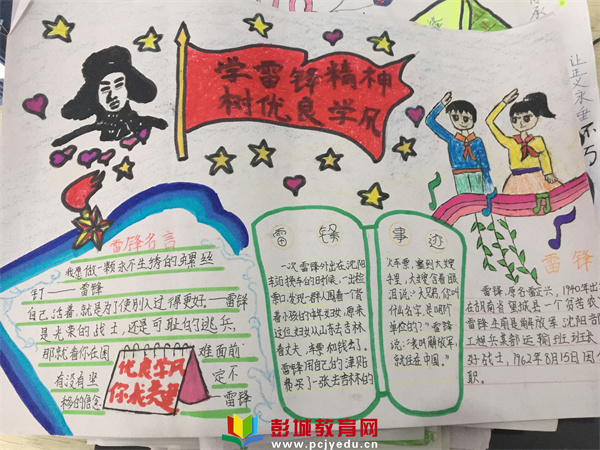 学雷锋精神
树优良学风
让正义永垂不
雷锋名言
我愿做一颗永不生锈的螺丝
钉——雷锋
自己活着,就是为了使别人过得更好——雷锋
是光荣的战士,还是可耻的逃兵,
那就看你在困难面前
有没有坚定不
移的信念——雷锋
优良学风
你我共建
雷锋事迹
一次雷锋外出在沈阳
车站换车的时候,一出检
票口,发现一群人围着一个背
着小孩的中年妇女,原来
这位妇女从山东去吉林
看丈夫,车票和钱丢了。
雷锋用自己的津贴
费买了一张去吉林的
火车票,塞到大嫂
手里,大嫂含着眼
泪说:“大兄弟,你叫
什么名字,是哪个
单位的?”雷锋
说:“我叫解放军,
就住在中国。”
雷锋
雷锋,原名雷正兴,1940年出
在湖南省望城县一个贫苦农
雷锋生前是解放军沈阳部
工程兵某部运输班班长
好战士,1962年8月15日因公
职。
彭城教育网
www.pcjyedu.cn